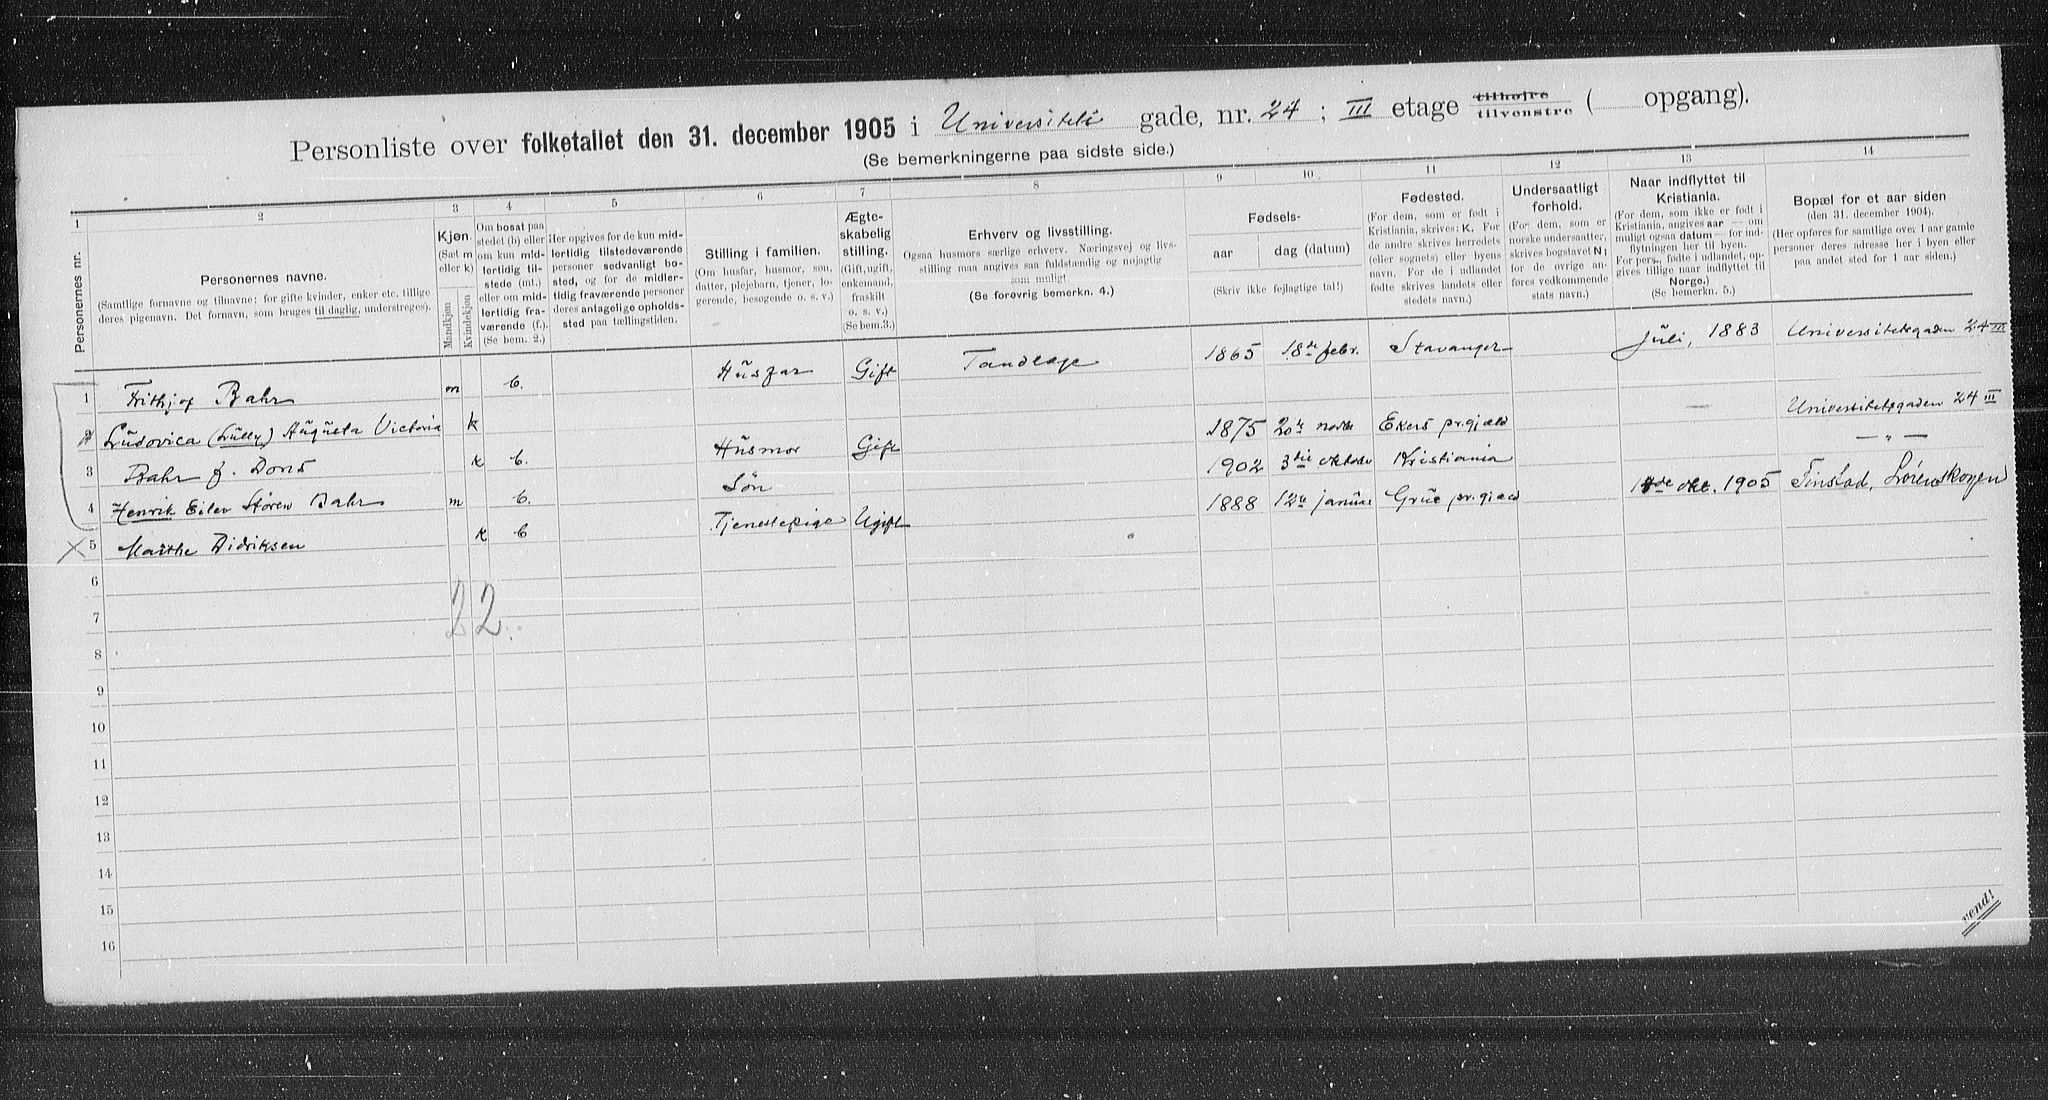 Personliste over folketallet den 31. december 1905 i Universitets gade, nr. 24; III etage tilhøjre tilvenstre ( opgang).
(Se bemerkningerne paa sidste side.)
1 2 3 4 5 6 7 8 9 10 11 12 13 14
Personernes nr.
Personernes navne.
(Samtlige fornavne og tilnavne; for gifte kvinder, enker etc. tillige
deres pigenavn. Det fornavn, som bruges til daglig, understreges).
Kjøn.
(Sæt m
eller k)
Mandkjøn
Kvindekjøn
Om bosat paa
stedet (b) eller
om kun mid-
lertidig til-
stede (mt.)
eller om mid-
lertidig fra-
værende (f.).
(Se bem. 2.)
Her opgives for de kun mid-
lertidig tilstedeværende
personer sedvanlig bo-
sted, og for de midler-
tidig fraværende personer
deres antagelige opholds-
sted paa tællingstiden.
Stilling i familien.
(Om husfar, husmor, søn,
datter, plejebarn, tjener, lo-
gerende, besøgende o. s. v.)
Ægte-
skabelig
stilling.
(Gift, ugift,
enkemand,
fraskilt
o. s. v.)
(Se bem.3.)
Erhverv og livsstilling.
Ogsaa husmors særlige erhverv. Næringsvej og livs-
stilling maa angives saa fuldstændig og nøjagtig
som muligt.
(Se forøvrig bemerkn. 4.)
Fødsels-
aar dag (datum)
(Skriv ikke fejlagtige tal!)
Fødested.
(For dem, som er født i
Kristiania, skrives: K. For
de andre skrives herredets
(eller sognets) eller byens
navn. For de i udlandet
fødte skrives landets eller
stedets navn.)
Undersaatligt
forhold.
(For dem, som er
norske undersaatter,
skrives bogstavet N;
for de øvrige an-
føres vedkommende
stats navn.)
Naar indflyttet til
Kristiania.
(For dem, som ikke er født i
Kristiania, angives aar — om
muligt ogsaa datum — for ind-
flytningen her til byen.
For pers., fødte i udlandet, op-
gives tillige naar indflyttet til
Norge.)
(Se bemerkn. 5.)
Bopæl for et aar siden
(den 31. december 1904).
(Her opføres for samtlige over 1 aar gamle
personer deres adresse her i byen eller
paa andet sted for 1 aar siden.)
1 Frithjof Bahr m b. Husfar Gift Tandlæge 1865 18de febr. Stavanger Juli, 1883 Universitetsgaden 24 III
2 Ludovica (Lully) Augusta Victoria k
3 Bahr f. Dons k b. Husmor Gift 1875 20de novbr Ekers pr.gjæld — Universitetsgaden 24 III
4 Henrik Eiler Støren Bahr m b. Søn 1902 3die oktober Kristiania — " —
5 Marthe Didriksen k b Tjenestepige Ugift 1888 12te januar Grue pr.gjæld okt. 1905 Finstad, Lørenskogen
6
7
22.
8
9
10
11
12
13
14
15
16
vend!